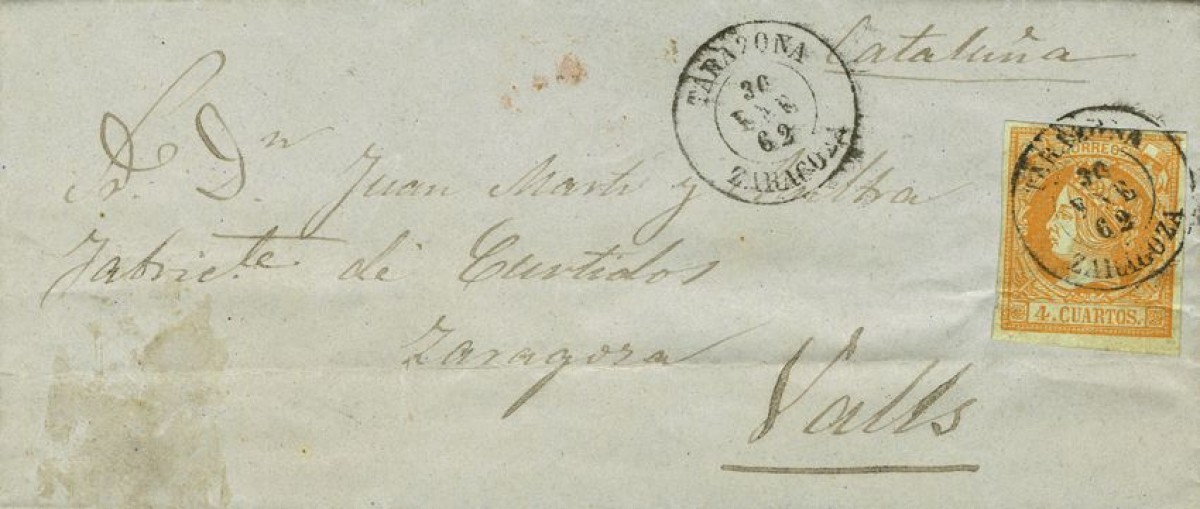 Cataluña
TARAZONA
30
ENE
62
ZARAGOZA
CORREOS
TARAZONA
30
ENE
62
ZARAGOZA
4. CUARTOS.
Sr. Dn Juan Marti y
Fabricte. de Curtidos
Zaragoza
Valls